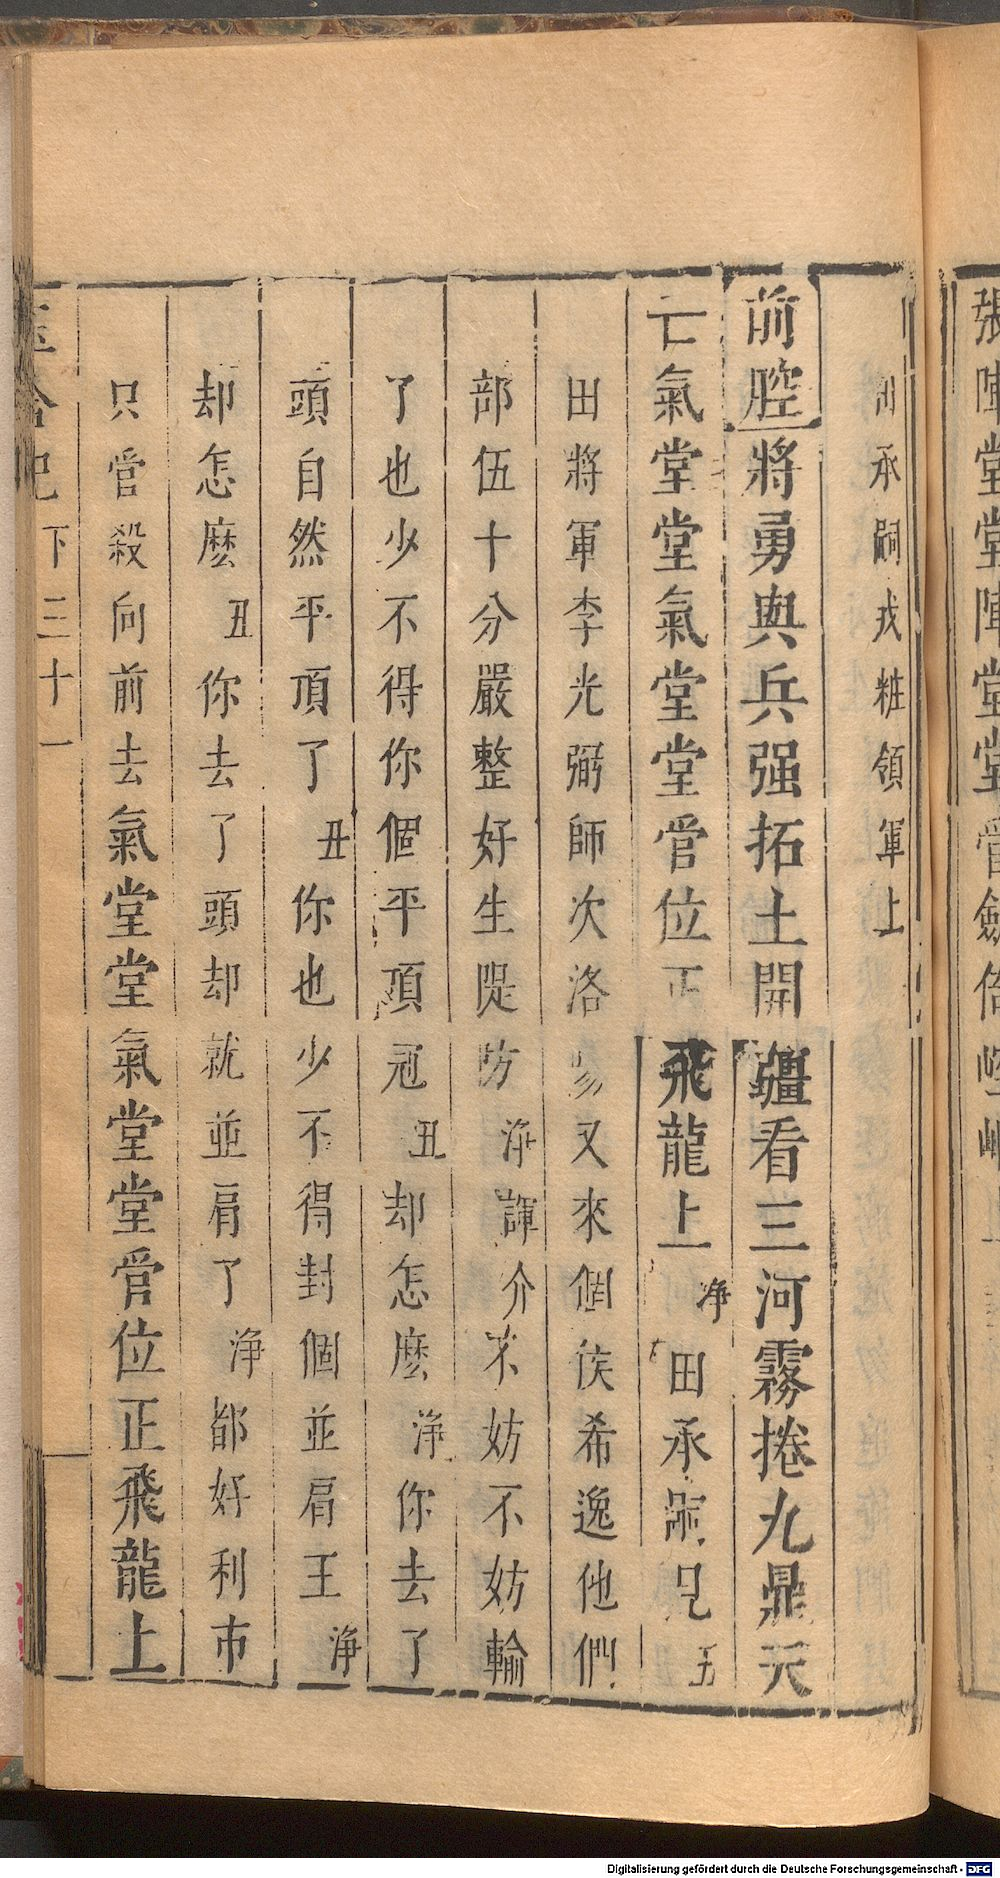 張陣堂堂陣堂堂
承嗣戎粧領軍上
前腔將勇與兵强拓土開疆看三河霧捲九鼎元
亡氣堂堂氣堂堂官位正飛龍上淨田承嗣見丑
田將軍李光弼師次洛陽又來個侯希逸他們
部伍十分嚴整好生隄防淨諢介不妨不妨輸
了也少不得你個平頂冠丑却怎麽淨你去了
頭自然平頂了丑你也少不得封個並肩王淨
却怎麽丑你去了頭却就並肩了淨都好利市
只官殺向前去氣堂堂氣堂堂官位正飛龍上
玉合記下三十一
Digitalisierung gefördert durch die Deutsche Forschungsgemeinschaft - DFG